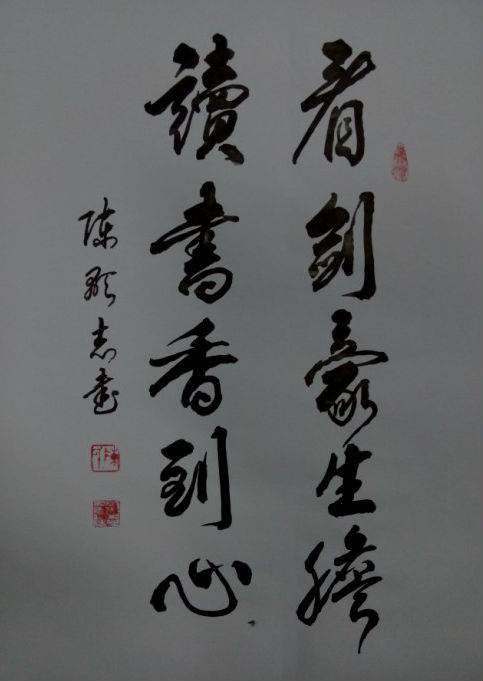 看劍豪生膽
讀書香到心
陳 志書